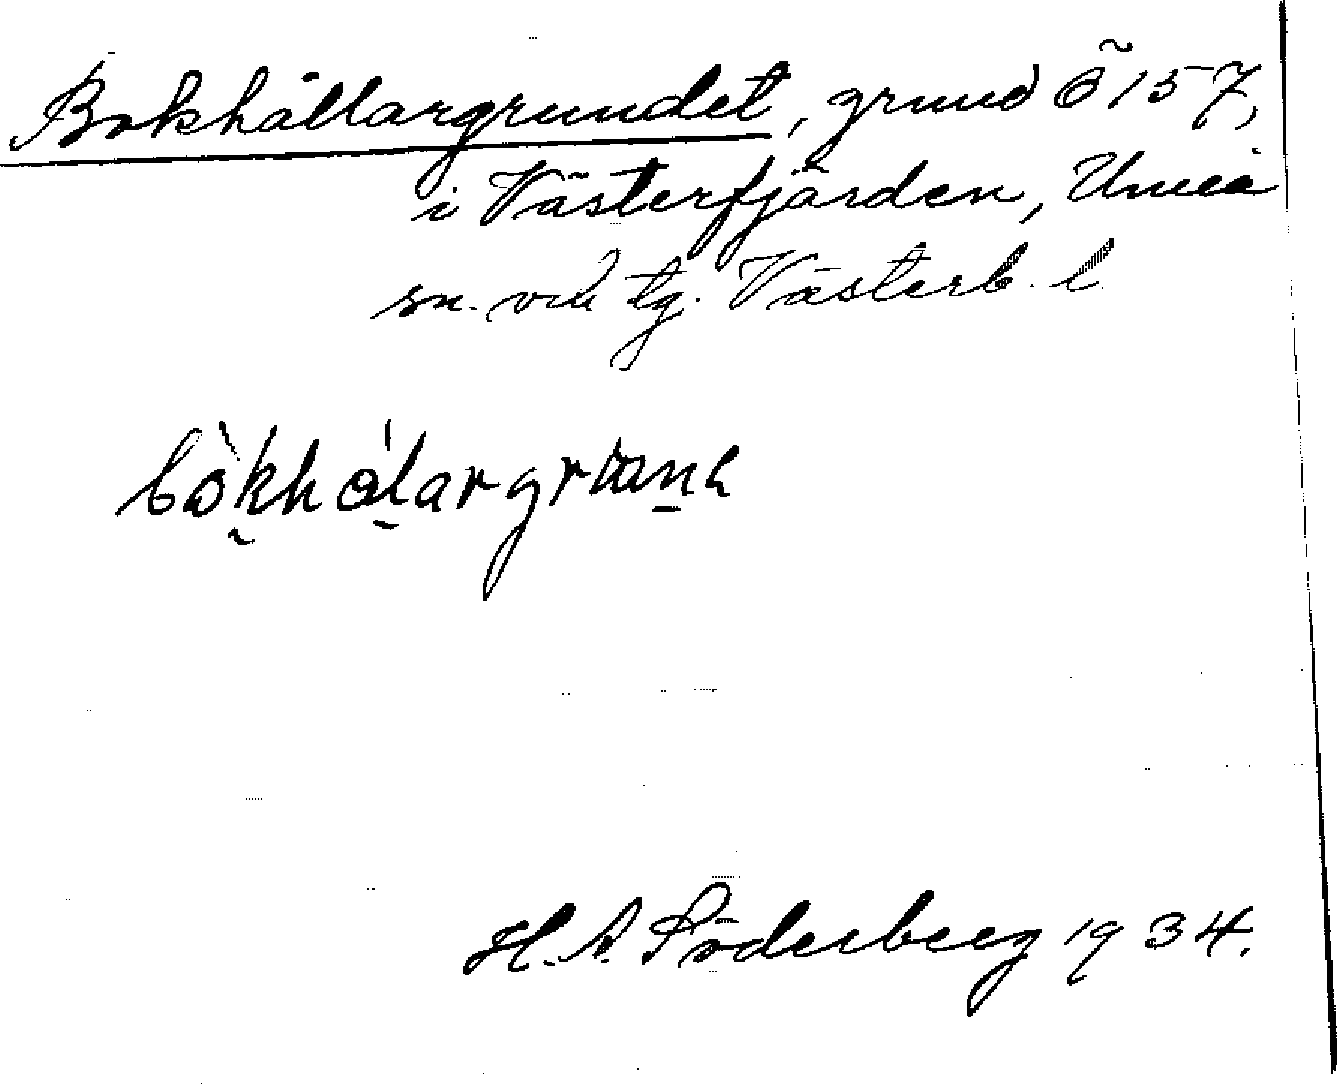 Bokhållargrundet, grund Ö 157,
i Västerfjärden, Umeå
sn. vid tg. Västerb. l.
H. A. Söderberg 1934.